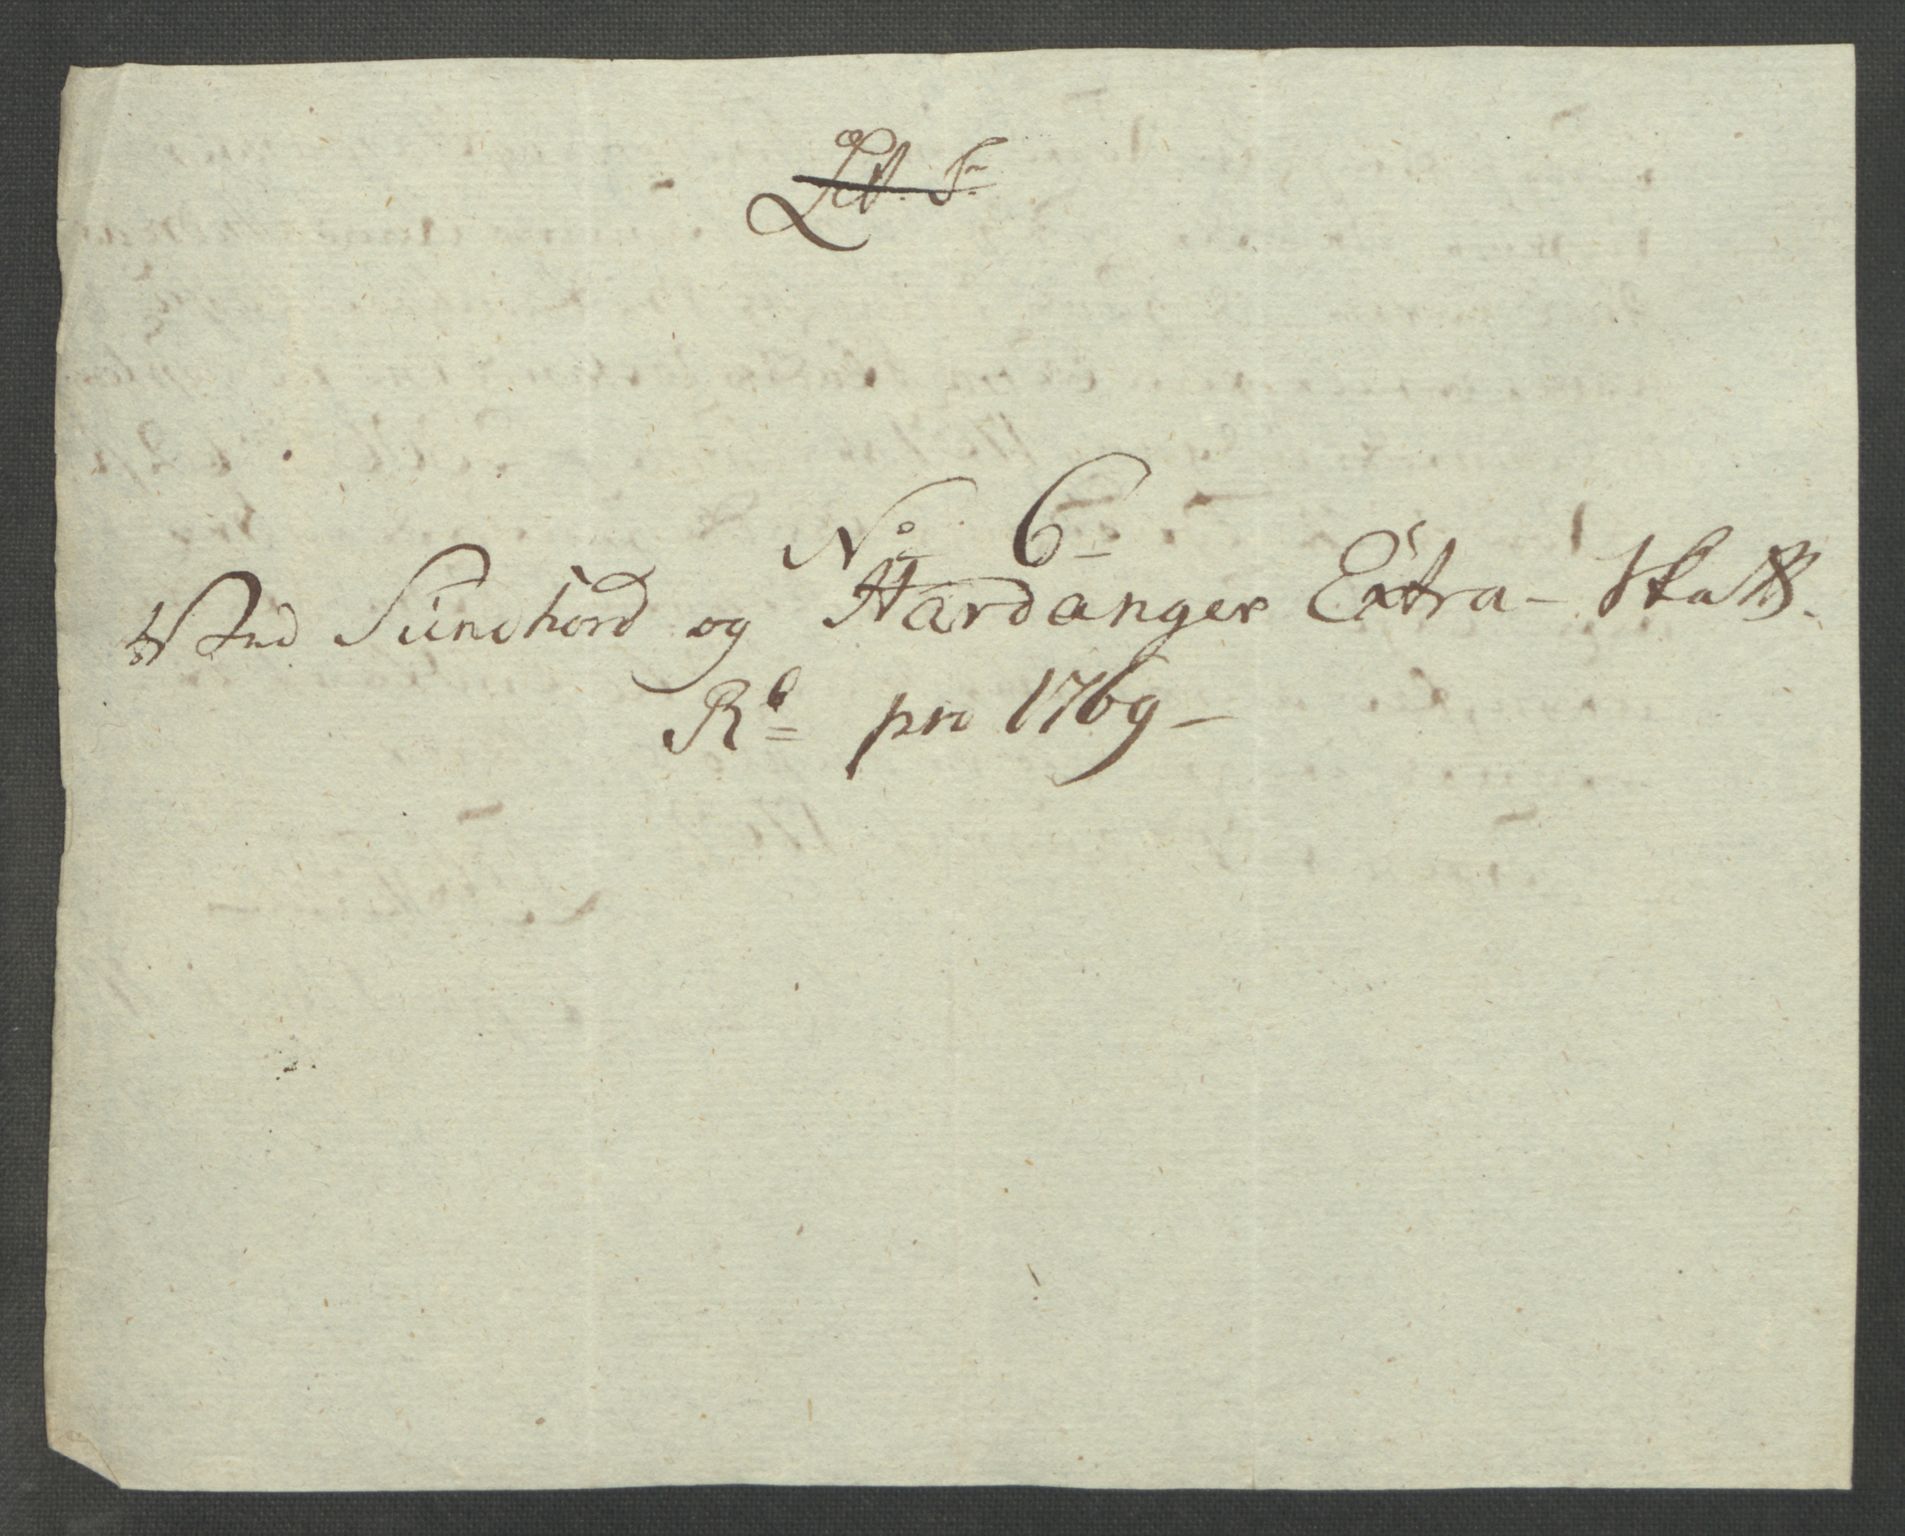 Lit. S
No. 6
Ved Sundhord og Hardanger Extra-Skatt
Rb pro 1769